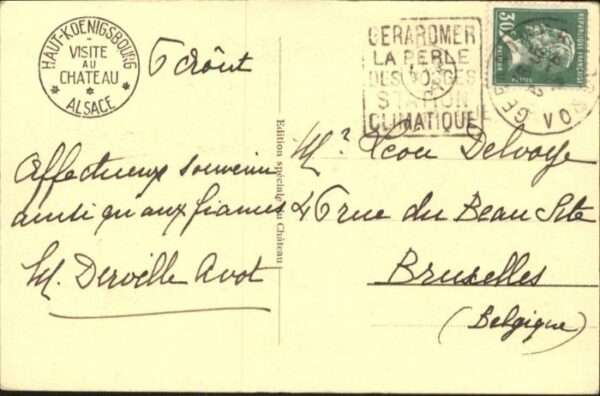 HAUT-KOENIGSBOURG
- VISITE
AU
CHATEAU
ALSACE
6 Août
Affectueux souvenir
ainsi qu'aux fiancés
M. Derville Avot
Edition spéciale du Château
GERARDMER
LA PERLE
DES VOSGES
STATION
CLIMATIQUE
30c
REPUBLIQUE FRANÇAISE
VO
Mr Léon Delvoye
46 rue du Beau Site
Bruxelles
(Belgique)